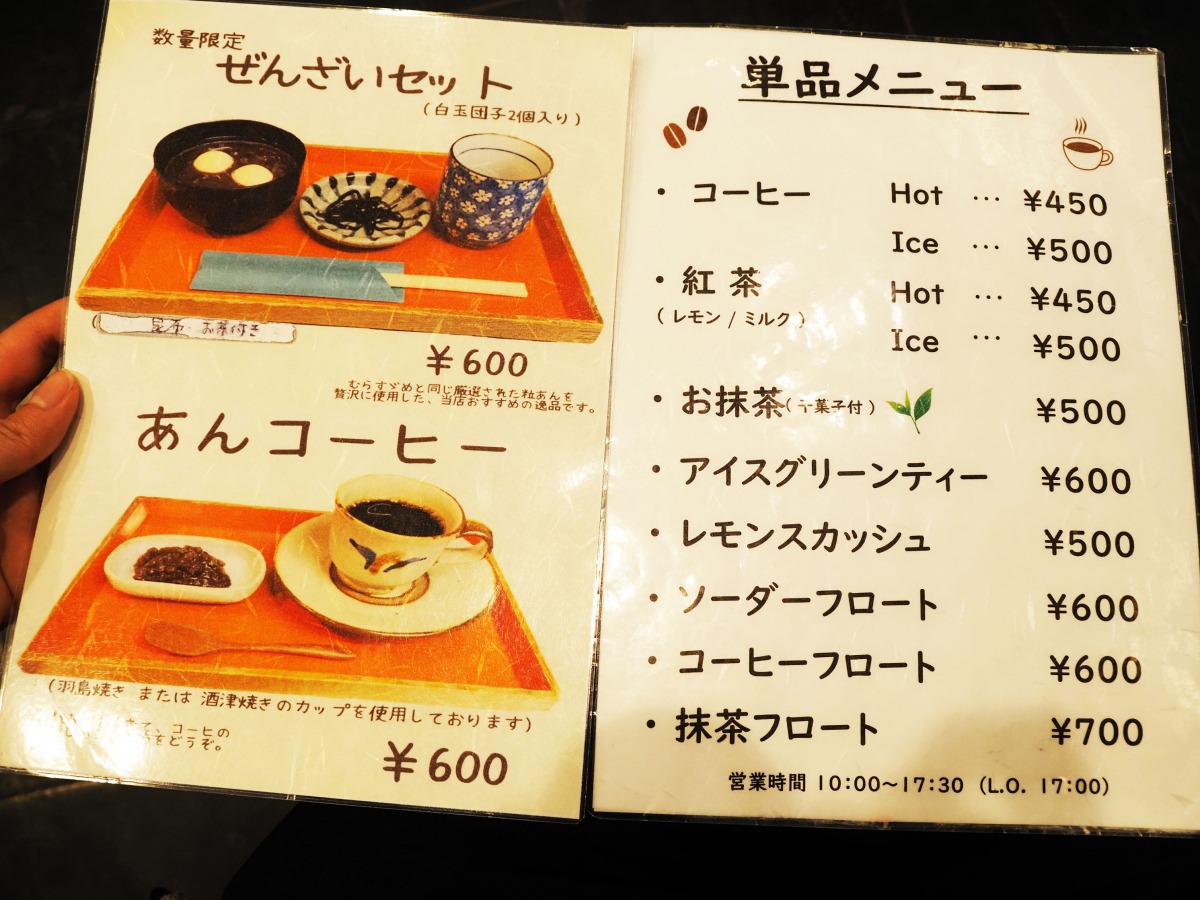 数量限定
ぜんざいセット
(白玉団子2個入り)
昆布・お茶付き
¥600
むらすゞめと同じ厳選された粒あんを
贅沢に使用した、当店おすすめの逸品です。
あんコーヒー
(羽島焼き または 酒津焼きのカップを使用しております)
コーヒの
をどうぞ。
¥600
単品メニュー
・コーヒー Hot … ¥450
Ice … ¥500
・紅茶 Hot … ¥450
(レモン / ミルク)
Ice … ¥500
・お抹茶(干菓子付) ¥500
・アイスグリーンティー ¥600
・レモンスカッシュ ¥500
・ソーダーフロート ¥600
・コーヒーフロート ¥600
・抹茶フロート ¥700
営業時間 10:00〜17:30 (L.O. 17:00)